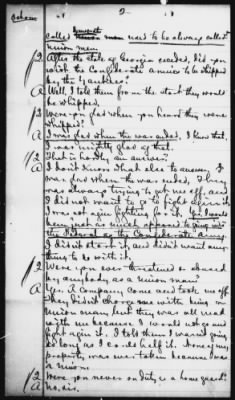 2
Osborn
called Democrat ~~Union man~~ used to be always called
Union man.
/2 After the state of Georgia seceded, did you
wish the Confederate armies to be whipped
by the Yankees?
A Well, I told them from the start they would
be whipped.
/2 Were you glad when you heard they were
whipped?
A I was glad when the war ended, I know that.
I was mighty glad of that.
/2 That is hardly an answer?
A I don't know what else to answer. I
was glad when the war ended,
was always trying to get me off, and
I did not want to go to fight agin it
I was not agin fighting for it. But I would
been just as much opposed to going into
the Federal as the Confederate Army.
I didn't start it, and didn't want any
thing to do with it.
/2 Were you ever threatened or abused
by anybody as a Union man?
A Yes. A company come and took me off
They didn't charge me with being a
Union man, but they was all mad
with me because I would not go and
fight agin it. I told them I warn't going
so long as I could help it. None of my
property was ever taken because I was
a Union
/2 Were you never on duty as a home guard?
A No, sir.